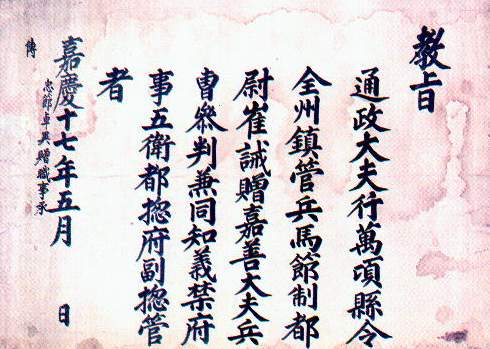 敎旨
通政大夫行萬頃縣令
全州鎮管兵馬節制都
尉崔誠贈嘉善大夫兵
曺叅判兼同知義禁府
事五衛都揔府副揔管
者
嘉慶十七年五月 日
忠節卓異贈職事承
傳